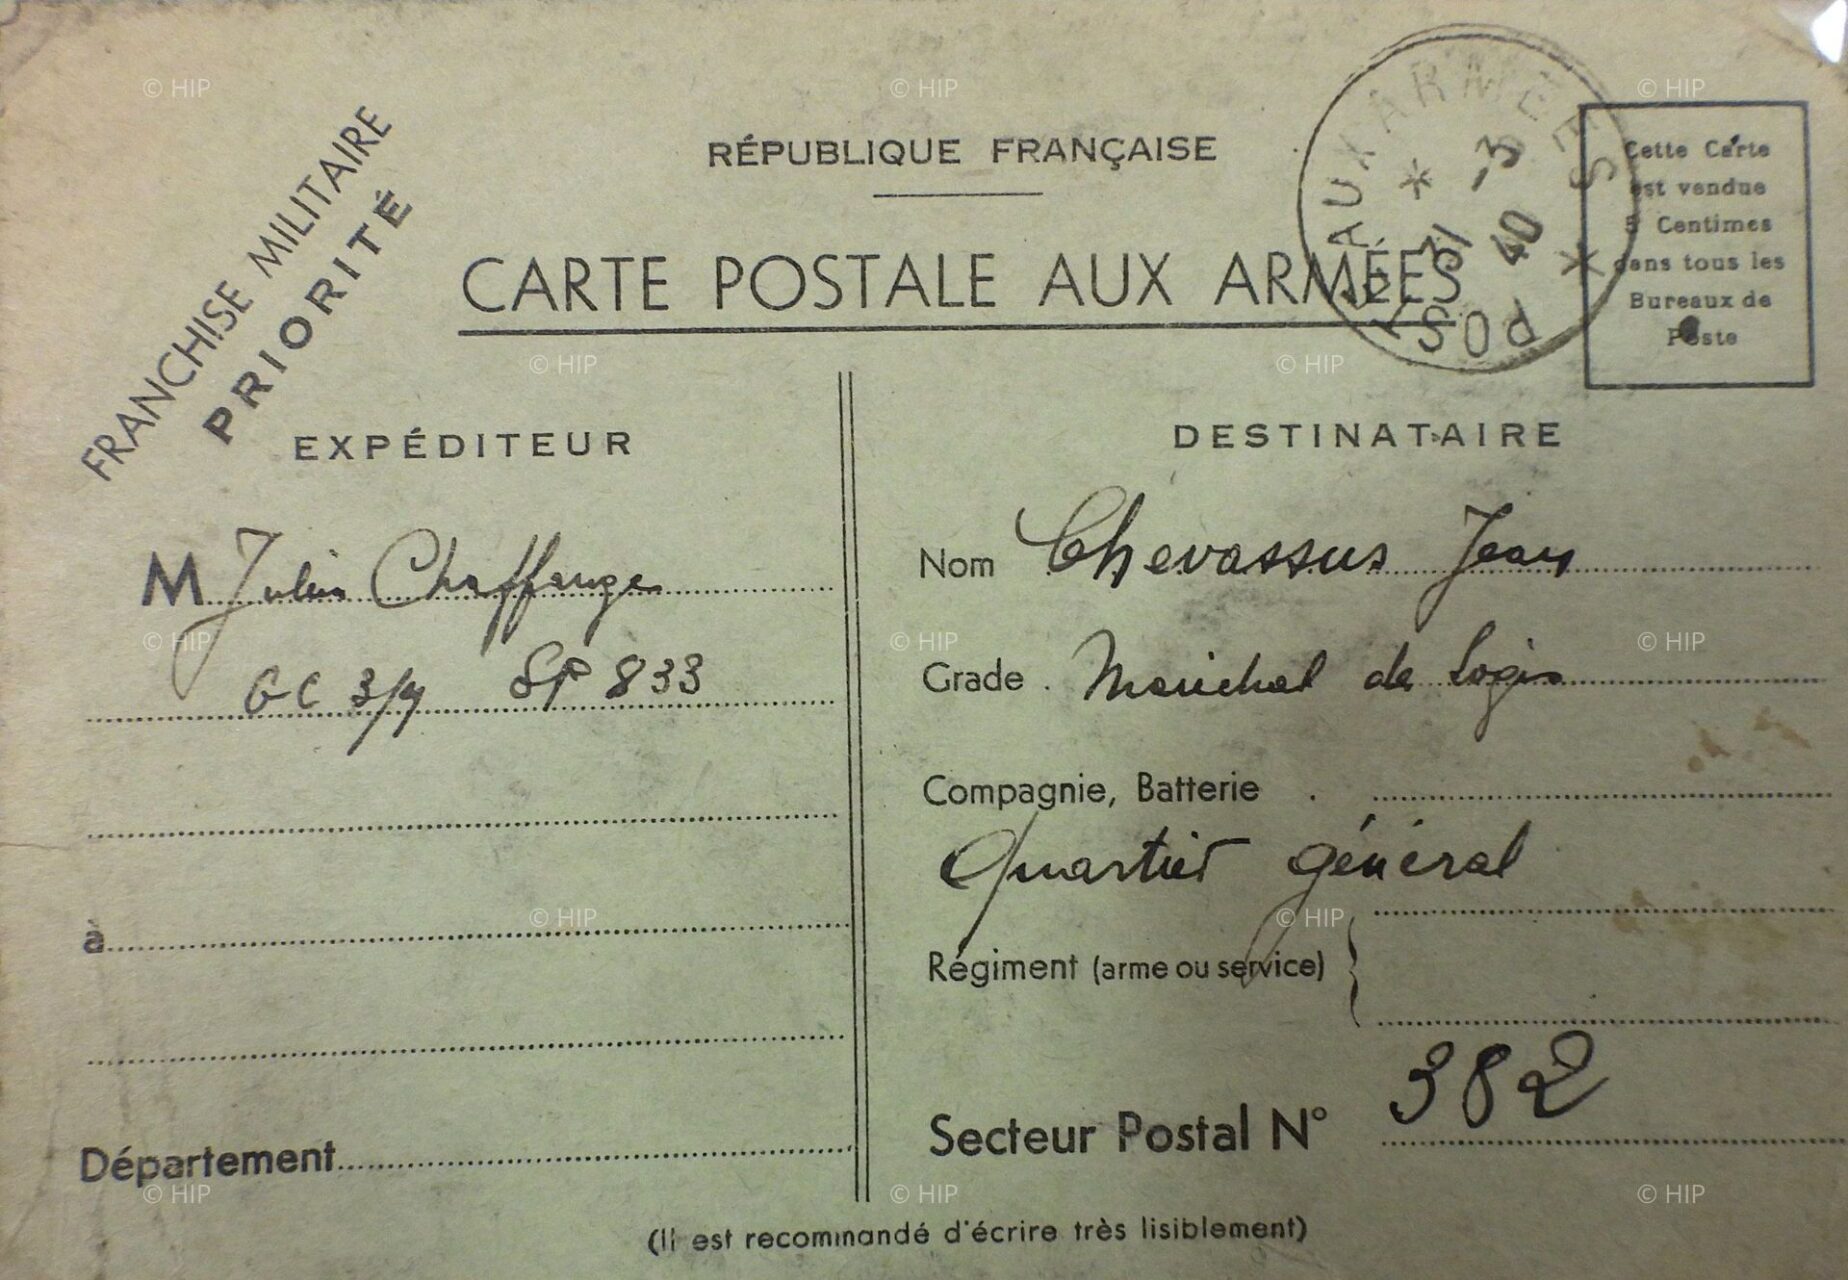 FRANCHISE MILITAIRE
PRIORITÉ
RÉPUBLIQUE FRANÇAISE
CARTE POSTALE AUX ARMÉES
POSTE AUX ARMEES
* 31 -3 40 *
Cette Carte
est vendue
5 Centimes
dans tous les
Bureaux de
Poste
EXPÉDITEUR
M Julien Chaffange
GC 3/9 SP 833
à
Département
DESTINATAIRE
Nom Chevassus Jean
Grade . Marichal de Logis
Compagnie, Batterie .
Quartier général
Régiment (arme ou service) }
Secteur Postal N° 382
(Il est recommandé d'écrire très lisiblement)
© HIP © HIP © HIP
© HIP © HIP
© HIP © HIP © HIP
© HIP © HIP
© HIP © HIP © HIP